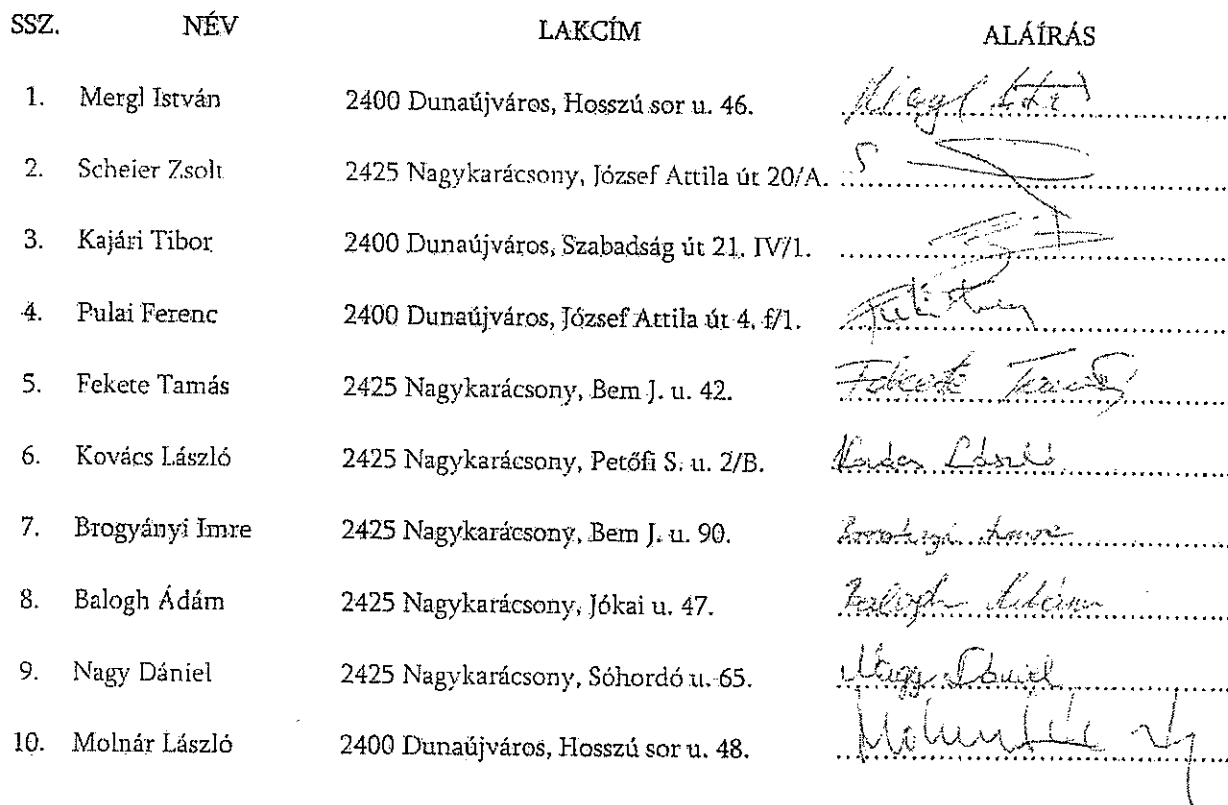 SSZ. NÉV LAKCÍM ALÁÍRÁS
1. Mergl István 2400 Dunaújváros, Hosszú sor u. 46.
2. Scheier Zsolt 2425 Nagykarácsony, József Attila út 20/A.
3. Kajári Tibor 2400 Dunaújváros, Szabadság út 21. IV/1.
4. Pulai Ferenc 2400 Dunaújváros, József Attila út 4. f/1.
5. Fekete Tamás 2425 Nagykarácsony, Bem J. u. 42. Fekete Tamás
6. Kovács László 2425 Nagykarácsony, Petőfi S. u. 2/B. Kovács László
7. Brogyányi Imre 2425 Nagykarácsony, Bem J. u. 90. Brogyányi Imre
8. Balogh Ádám 2425 Nagykarácsony, Jókai u. 47. Balogh Ádám
9. Nagy Dániel 2425 Nagykarácsony, Sóhordó u. 65. Nagy Dániel
10. Molnár László 2400 Dunaújváros, Hosszú sor u. 48.